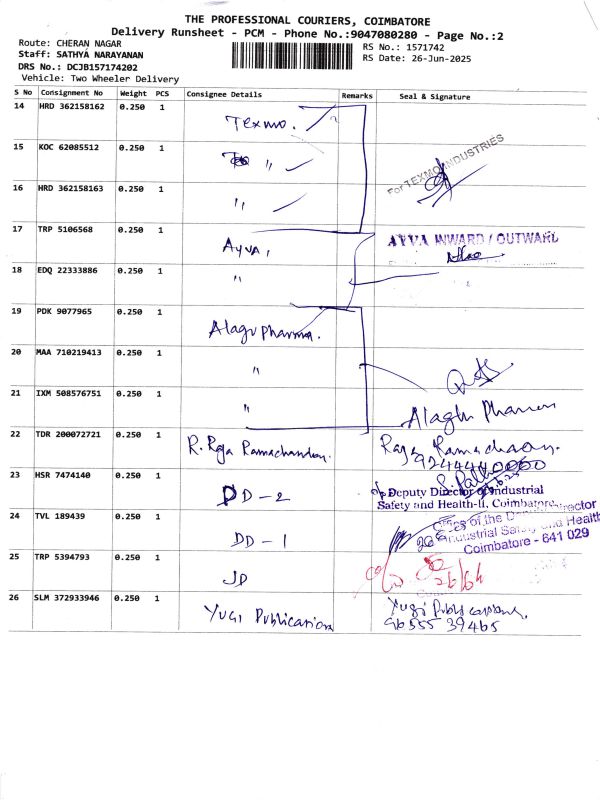 THE PROFESSIONAL COURIERS, COIMBATORE
Delivery Runsheet - PCM - Phone No.:9047080280 - Page No.:2
Route: CHERAN NAGAR
RS No.: 1571742
Staff: SATHYA NARAYANAN
RS Date: 26-Jun-2025
DRS No.: DCJB157174202
Vehicle: Two Wheeler Delivery
S No Consignment No Weight PCS Consignee Details Remarks Seal & Signature
14 HRD 362158162 0.250 1 Texmo.
15 KOC 62085512 0.250 1 "
For TEXMO INDUSTRIES
16 HRD 362158163 0.250 1 "
17 TRP 5106568 0.250 1 Ayva, AYVA INWARD / OUTWARD
18 EDQ 22333886 0.250 1 "
19 PDK 9077965 0.250 1 Alagu pharma.
20 MAA 710219413 0.250 1 "
21 IXM 508576751 0.250 1 " Alaghu Pharma
22 TDR 200072721 0.250 1 R. Raja Ramachandran. Raja Ramachandran.
9244440000
23 HSR 7474140 0.250 1 DD - 2 Deputy Director of Industrial
Safety and Health-II, Coimbatore
24 TVL 189439 0.250 1 DD - 1 Office of the Deputy Director
Industrial Safety and Health
Coimbatore - 641 029
25 TRP 5394793 0.250 1 JD 26/06
26 SLM 372933946 0.250 1 Yugi Publication Yugi Publications
96555 39465